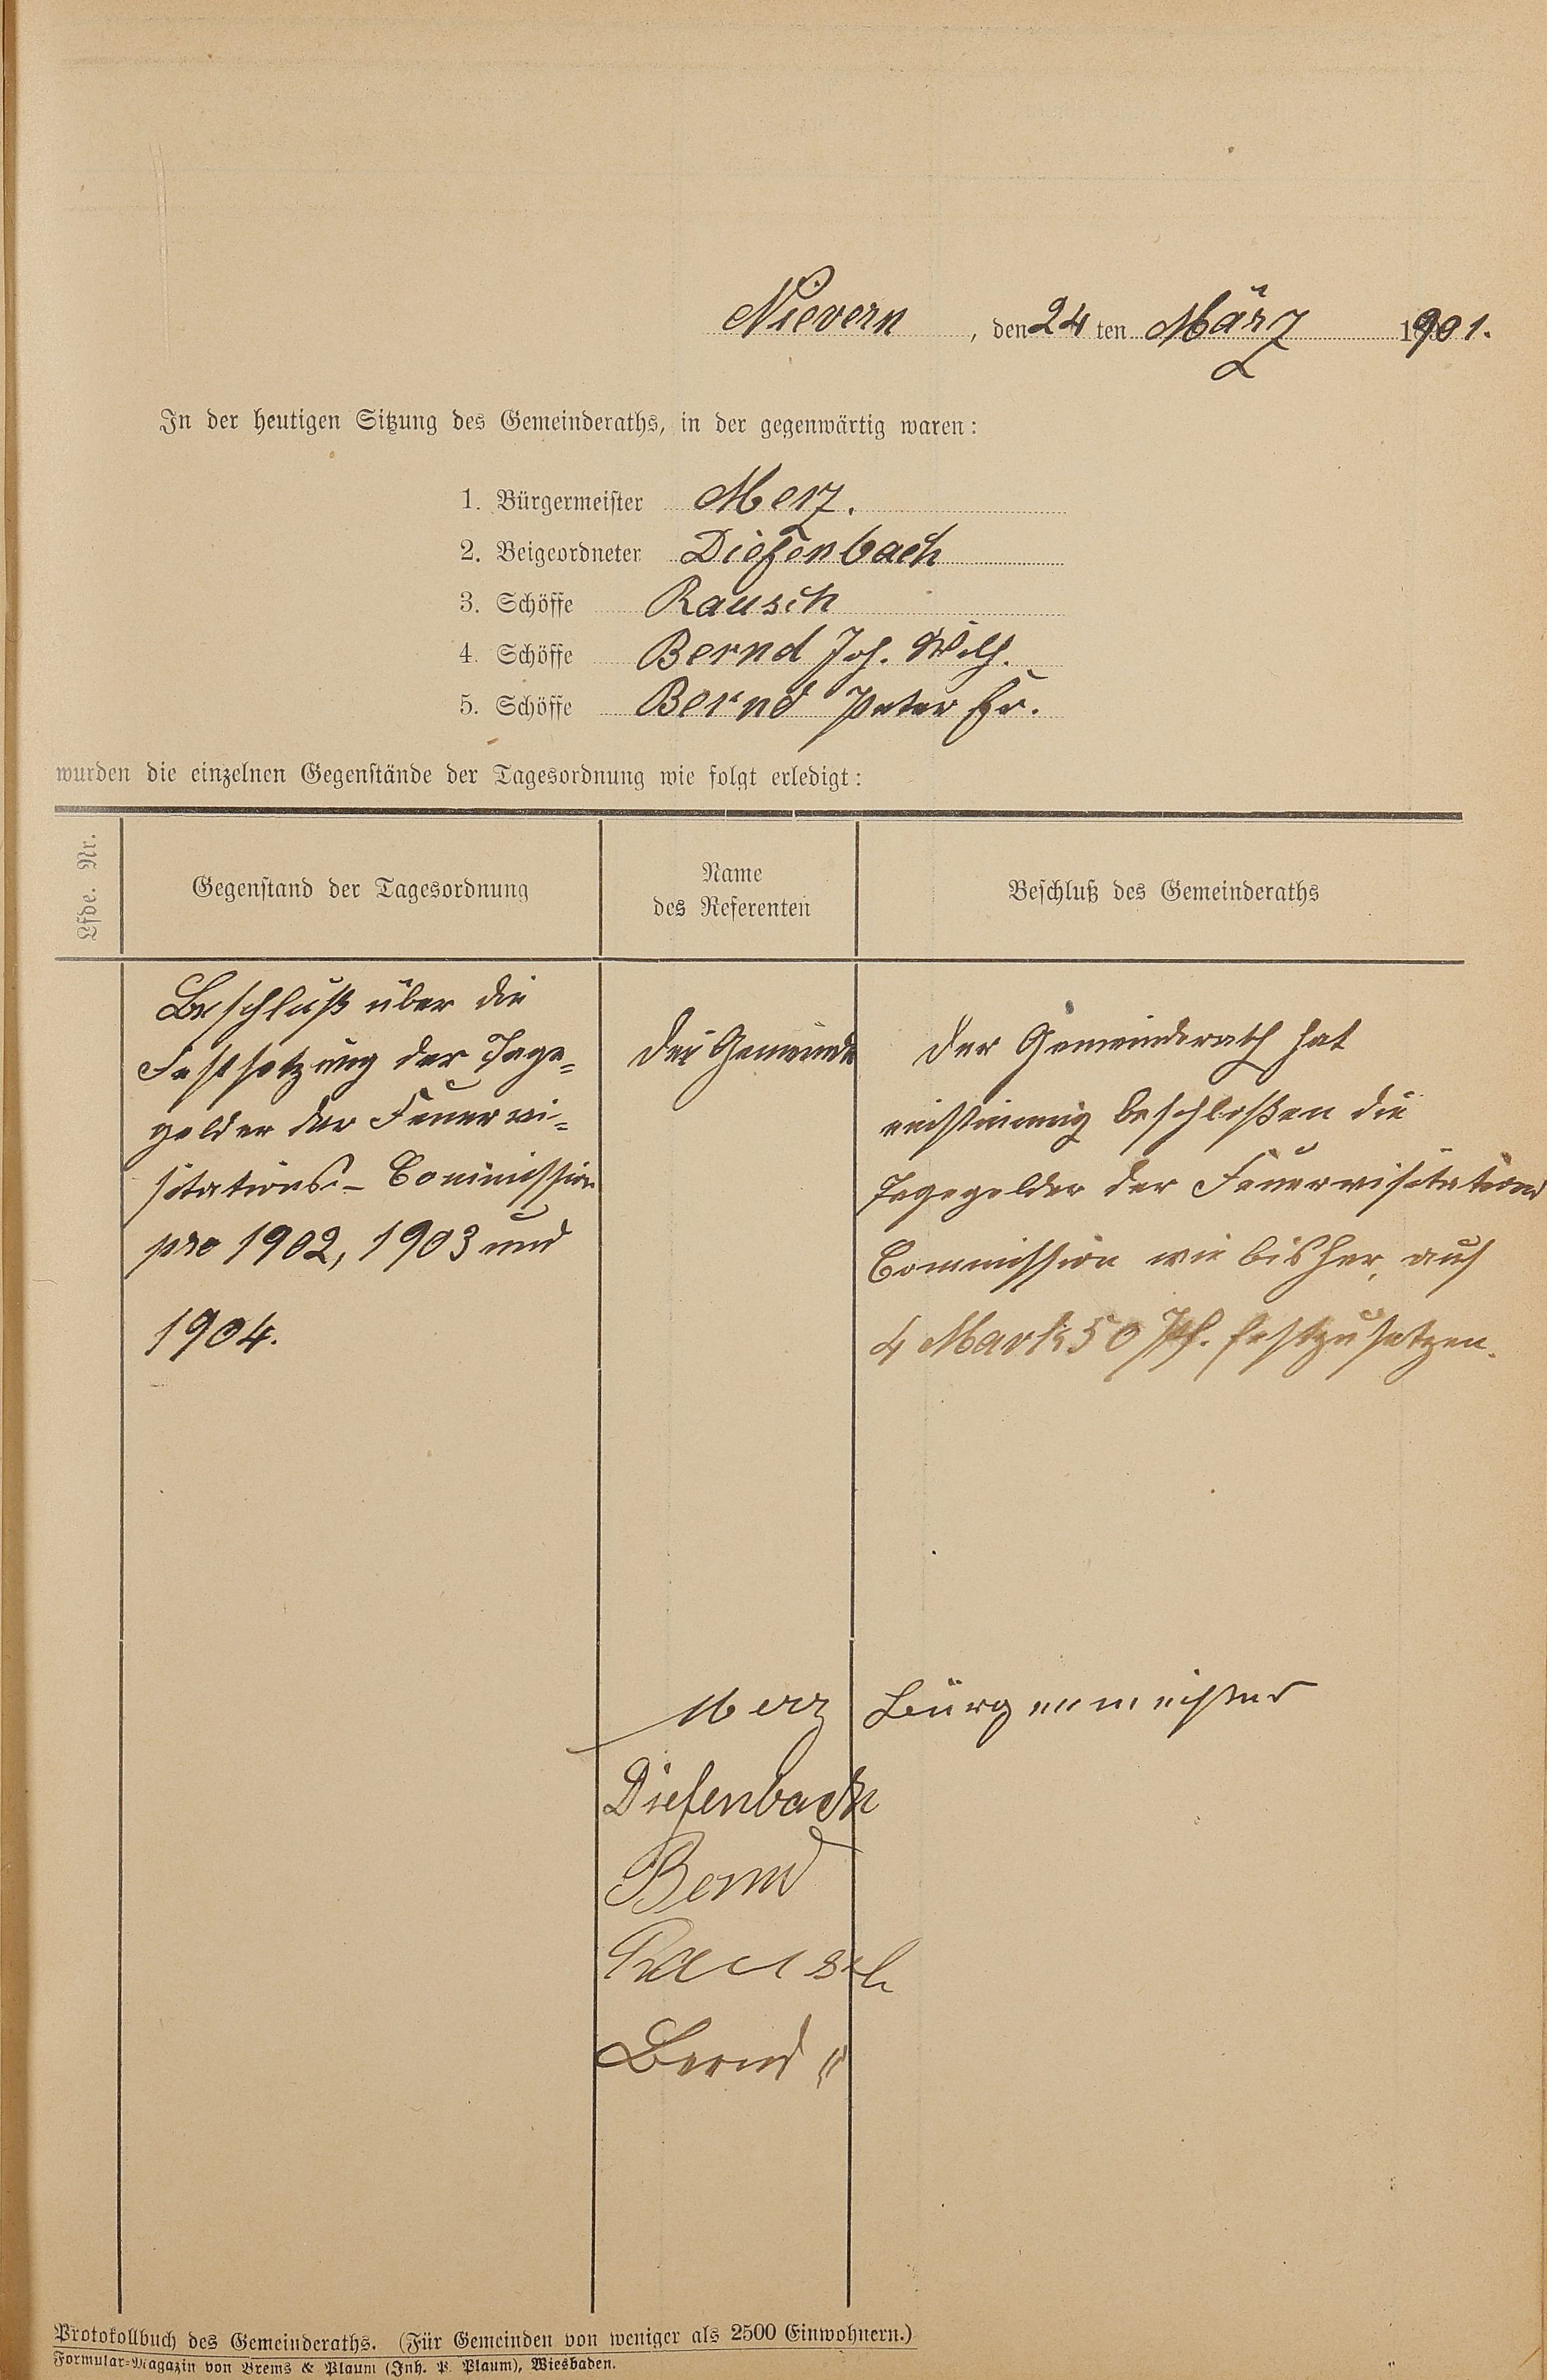 Nievern, den 24 ten März 1901.
In der heutigen Sitzung des Gemeinderaths, in der gegenwärtig waren:
1. Bürgermeister Merz.
2. Beigeordneter Diefenbach
3. Schöffe Rausch
4. Schöffe Bernd Joh. Wilh.
5. Schöffe Bernd Peter Fr.
wurden die einzelnen Gegenstände der Tagesordnung wie folgt erledigt:
Lfde. Nr.
Gegenstand der Tagesordnung
Name
des Referenten
Beschluß des Gemeinderaths
Beschluß über die
Festsetzung der Tage=
gelder der Feuervi=
sitations-Commission
pro 1902, 1903 und
1904.
Die Gemeinde
Der Gemeinderath hat
einstimmig beschloßen die
Tagegelder der Feuervisitations
Commission wie bisher, auf
4 Mark 50 Pf. festzusetzen.
Merz Bürgermeister
Diefenbach
Bernd
Rausch
Bernd
Protokollbuch des Gemeinderaths. (Für Gemeinden von weniger als 2500 Einwohnern.)
Formular-Magazin von Brems & Plaum (Inh. P. Plaum), Wiesbaden.